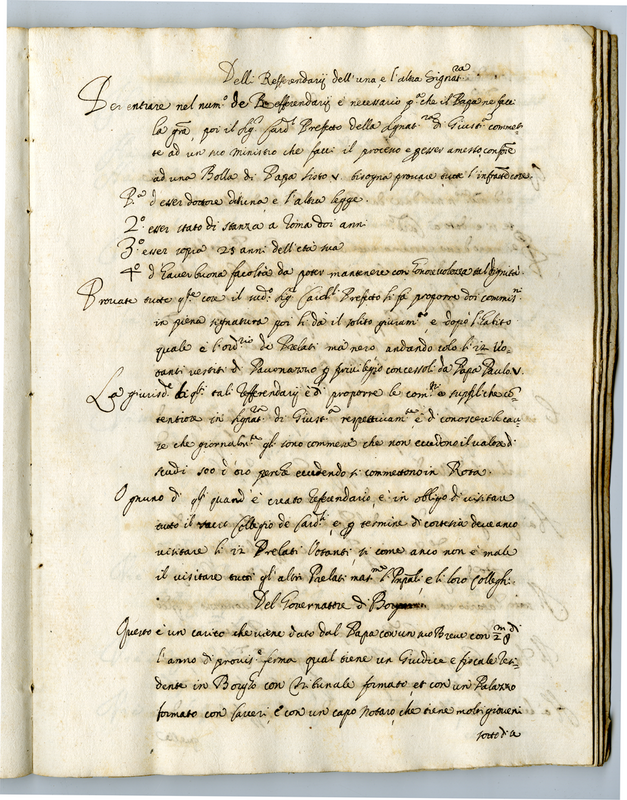 Delli Refferendarij dell'una, e l'altra Signat.ra
Per entrare nel num.o de Refferendarij è necessario p.a che il Papa ne facci
la gra, poi il Sig.r Card. Prefetto della Signat.ra di Giust.a commet-
te ad un suo Ministro che facci il processo esser amesto, conforme
ad una Bolla di Papa Sisto V. bisogna provare tutte l'infratte cose.
P.a d'esser dottore di una, e l'altra legge.
2.o esser stato di stanza a Roma doi anni
3.o esser sopra 25 anni dell'età sua
4.o d'haver buona facoltà da poter mantenere con honorevolezza tal dignità
Provate tutte q.ste cose il sud.o Sig.r Card.l Prefetto li fa proporre doi commiss.ni
in piena segnatura poi li dà il solito giuram.to e dopò l'habito
quale è l'ord.rio de Prelati mà nero andando solo li 12 Vo-
tanti vestiti di Pavonazzo p privilegio concessoli da Papa Paulo V.
La giurisd.e di q.sti tali Refferendarij è di proporre le com.ni e suppliche co-
tentiose in Signat.ra di Giust.a respettivam.te e di conoscere le cau-
se che giornalm.te gli sono commesse che non eccedono il valore di
scudi 500 d'oro perche eccedendo si commettono in Rota.
Ognuno di q.sti quand'è creato Refferendario, è in obligo di visitare
tutto il sacro Collegio de Card.li, e p termine di cortesia deve anco
visitare li 12 Prelati Votanti, si come anco non è male
il visitare tutti gli altri Prelati mas.me l. Pnpali, e li loro Colleghi.
Del Governatore di Borgo
Questo è un carico che viene dato dal Papa con un suo Breve con
l'anno di provis.e ferma qual tiene un Giudice e fiscale resi-
dente in Borgo con Tribunale formato et con un Palazzo
formato con Carceri, e con un capo Notaro, che tiene molti gioveni
sotto di se